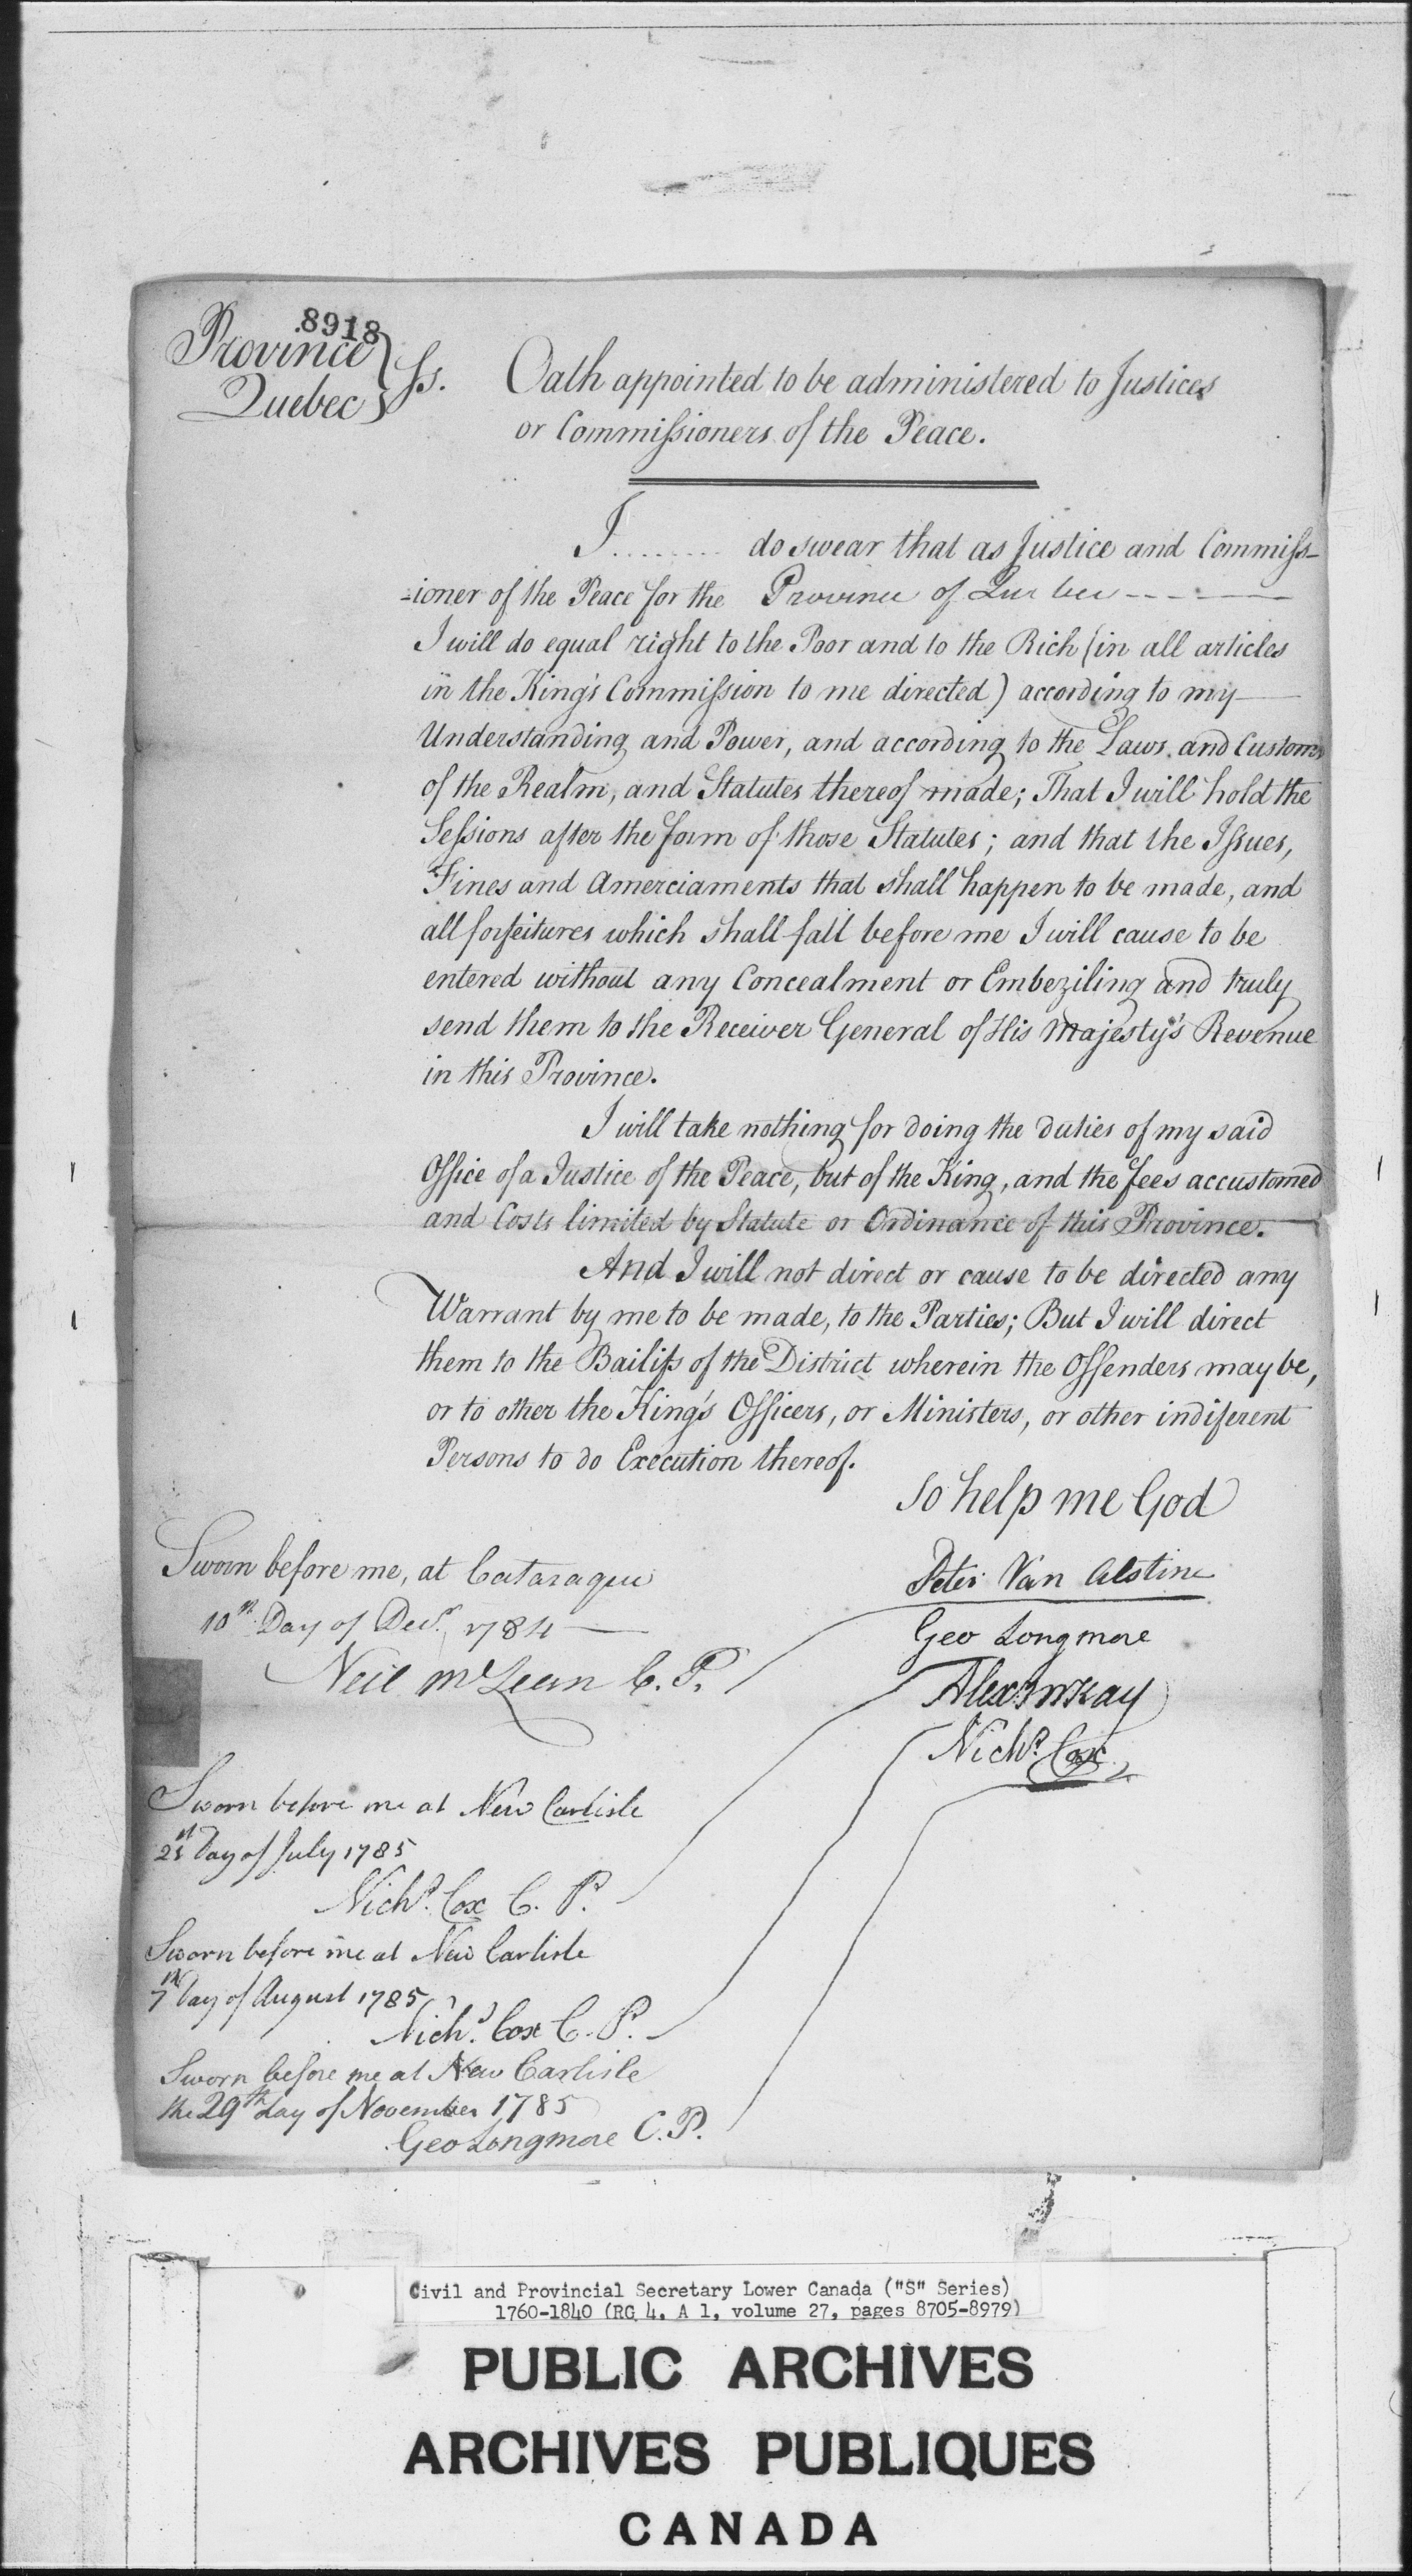 8918
Province
Quebec } Ss.
Oath appointed to be administered to Justices
or Commissioners of the Peace.
I ........ do swear that as Justice and Commiss-
-ioner of the Peace for the Province of Quebec
I will do equal right to the Poor and to the Rich (in all articles
in the King's Commission to me directed) according to my
Understanding and Power, and according to the Laws and Customs
of the Realm, and Statutes thereof made; That I will hold the
Sessions after the form of those Statutes; and that the Issues,
Fines and Amerciaments that shall happen to be made, and
all forfeitures which shall fall before me I will cause to be
entered without any Concealment or Embeziling and truly
send them to the Receiver General of His Majesty's Revenue
in this Province.
I will take nothing for doing the duties of my said
Office of a Justice of the Peace, but of the King, and the fees accustomed
and Costs limited by Statute or Ordinance of this Province.
And I will not direct or cause to be directed any
Warrant by me to be made, to the Parties; But I will direct
them to the Bailifs of the District wherein the Offenders may be,
or to other the King's Officers, or Ministers, or other indiferent
Persons to do Execution thereof.
So help me God
Peter Van Alstine
Geo Longmore
Alexr McKay
Nichs. Cox
Sworn before me, at Cataraque
10th Day of Decr. 1784
Neil McLean C. P.
Sworn before me at New Carlisle
21st Day of July 1785
Nichs. Cox C. P.
Sworn before me at New Carlisle
7th Day of August 1785
Nichs. Cox C. P.
Sworn before me at New Carlisle
the 29th day of November 1785
Geo Longmore C. P.
Civil and Provincial Secretary Lower Canada ("S" Series)
1760-1840 (RG 4, A 1, volume 27, pages 8705-8979)
PUBLIC ARCHIVES
ARCHIVES PUBLIQUES
CANADA